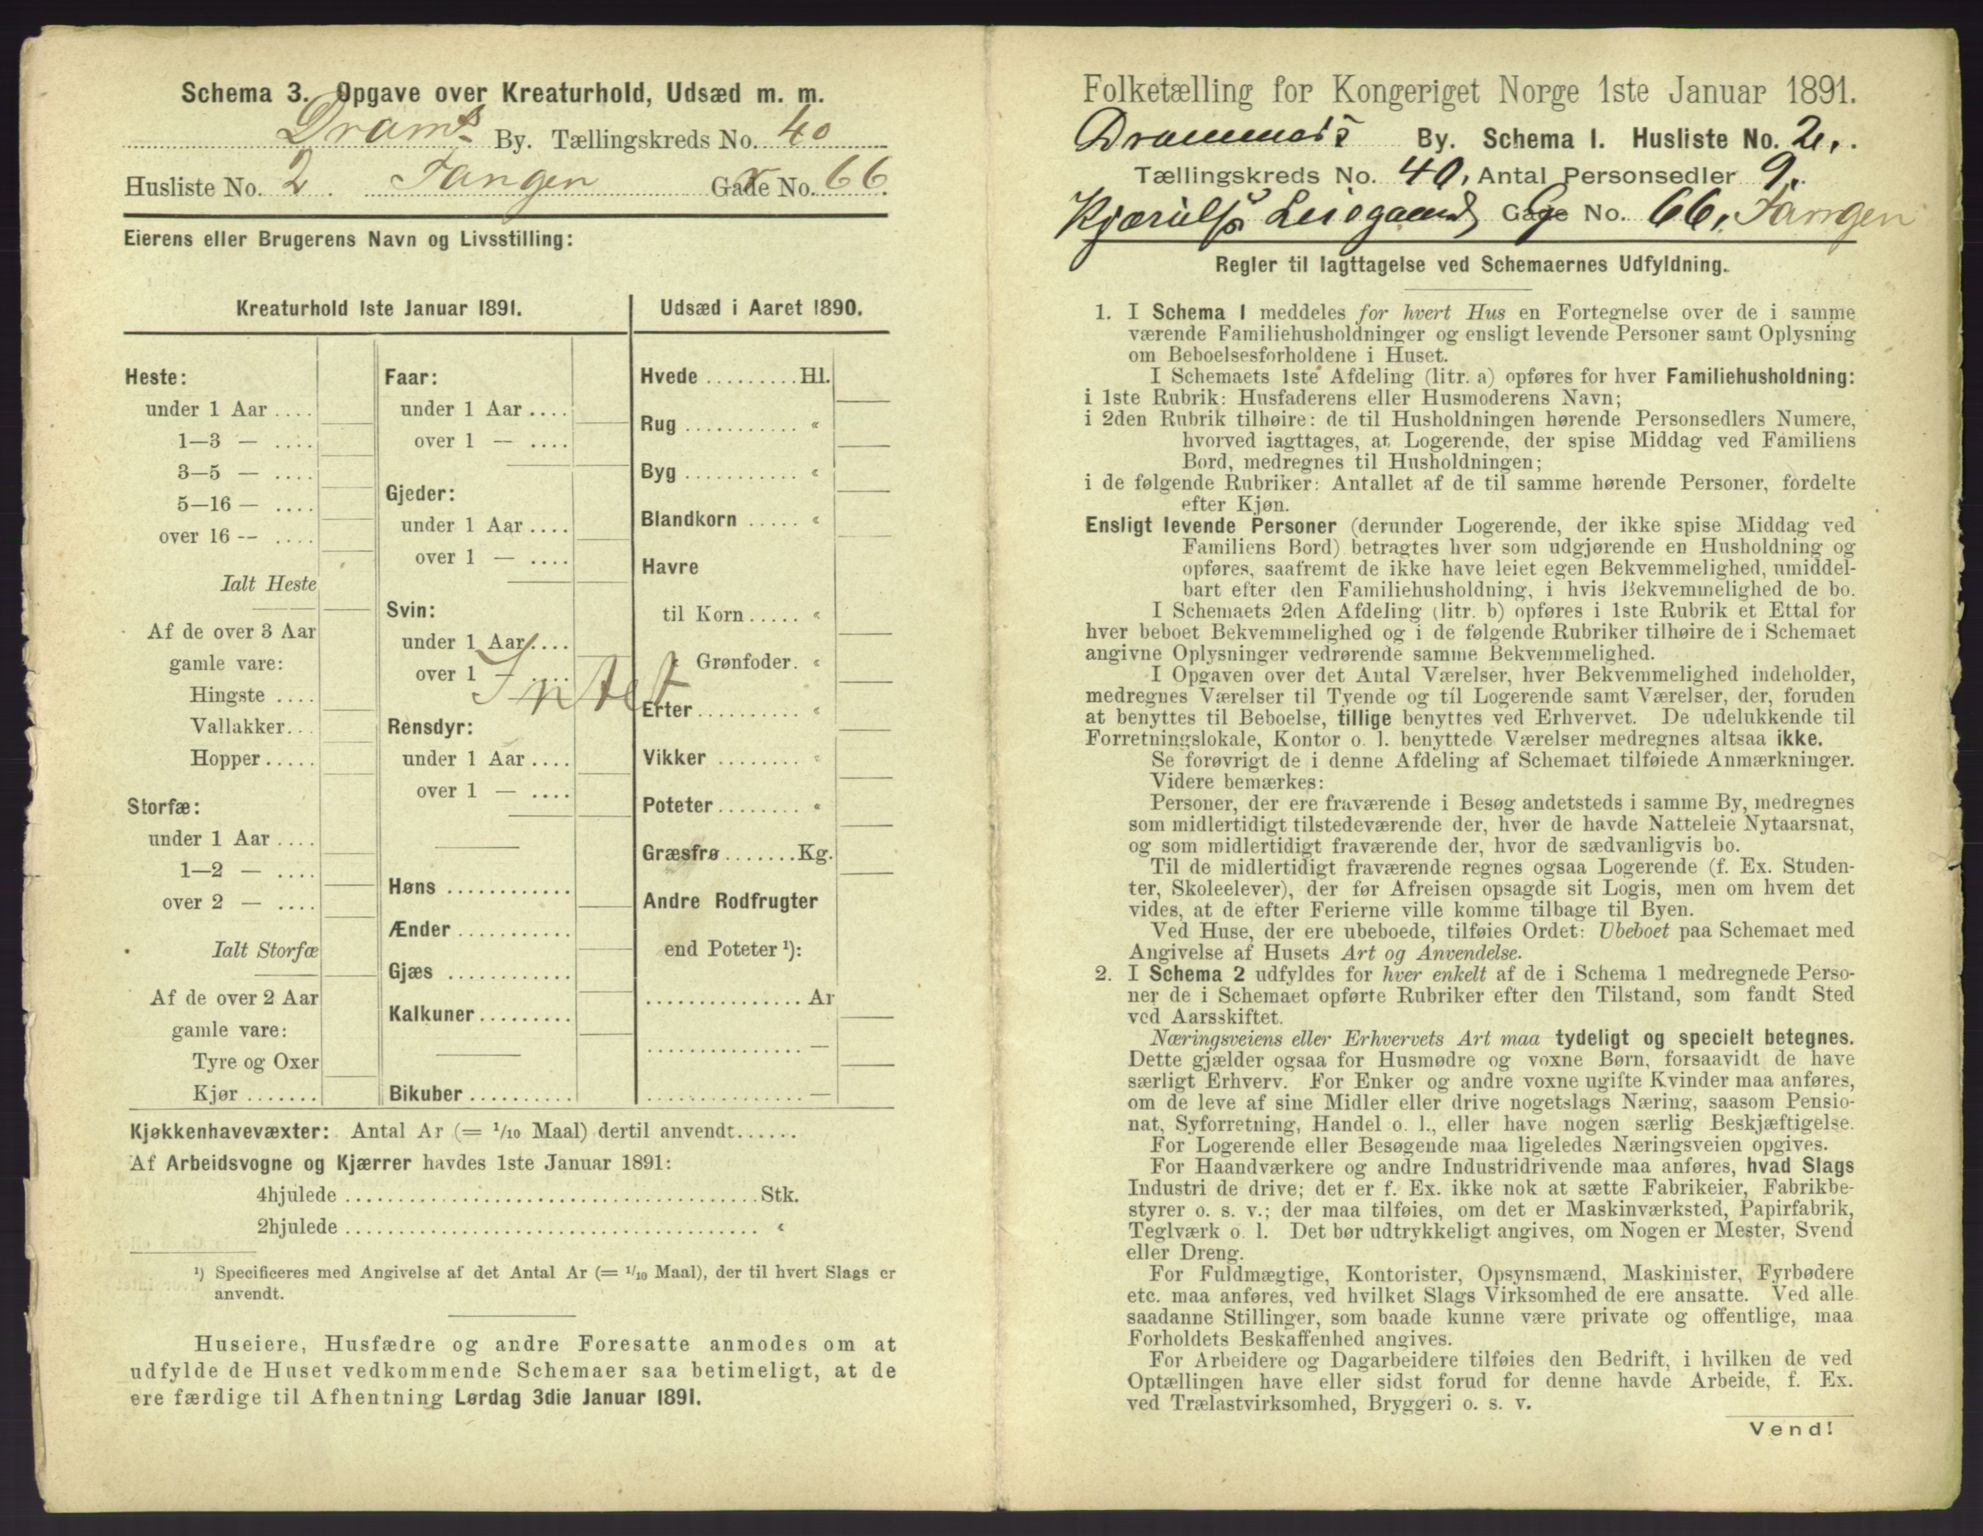 Schema 3. Opgave over Kreaturhold, Udsæd m. m.
Dramˢ By. Tællingskreds No. 40
Husliste No. 2 Tangen Gade No. 66.
Eierens eller Brugerens Navn og Livsstilling:
Kreaturhold 1ste Januar 1891.
Heste:
under 1 Aar ....
1—3 — ....
3—5 — ....
5—16 — ....
over 16 -- ....
Ialt Heste
Af de over 3 Aar
gamle vare:
Hingste ....
Vallakker...
Hopper.....
Storfæ:
under 1 Aar ....
1—2 — ....
over 2 — ....
Ialt Storfæ
Af de over 2 Aar
gamle vare:
Tyre og Oxer
Kjør .......
Faar:
under 1 Aar ....
over 1 — ....
Gjeder:
under 1 Aar ....
over 1 — ....
Svin:
under 1 Aar....
over 1 — .....
Intet
Rensdyr:
under 1 Aar ....
over 1 — ....
Høns ............
Ænder ...........
Gjæs ............
Kalkuner.........
Bikuber..........
Udsæd i Aaret 1890.
Hvede .........Hl.
Rug ........... «
Byg ........... «
Blandkorn ..... «
Havre
til Korn..... «
« Grønfoder. «
Erter.......... «
Vikker ........ «
Poteter........ «
Græsfrø.......Kg.
Andre Rodfrugter
end Poteter ¹):
............... Ar
............... —
............... —
Kjøkkenhavevæxter: Antal Ar (= 1/10 Maal) dertil anvendt......
Af Arbeidsvogne og Kjærrer havdes 1ste Januar 1891:
4hjulede ........................................Stk.
2hjulede ........................................ «
¹) Specificeres med Angivelse af det Antal Ar (= 1/10 Maal), der til hvert Slags er
anvendt.
Huseiere, Husfædre og andre Foresatte anmodes om at
udfylde de Huset vedkommende Schemaer saa betimeligt, at de
ere færdige til Afhentning Lørdag 3die Januar 1891.
Folketælling for Kongeriget Norge 1ste Januar 1891.
Drammens By. Schema 1. Husliste No. 2.
Tællingskreds No. 40, Antal Personsedler 9.
Gade No. 66, Tangen
Regler til Iagttagelse ved Schemaernes Udfyldning.
1. I Schema 1 meddeles for hvert Hus en Fortegnelse over de i samme
værende Familiehusholdninger og ensligt levende Personer samt Oplysning
om Beboelsesforholdene i Huset.
I Schemaets 1ste Afdeling (litr. a) opføres for hver Familiehusholdning:
i 1ste Rubrik: Husfaderens eller Husmoderens Navn;
i 2den Rubrik tilhøire: de til Husholdningen hørende Personsedlers Numere,
hvorved iagttages, at Logerende, der spise Middag ved Familiens
Bord, medregnes til Husholdningen;
i de følgende Rubriker: Antallet af de til samme hørende Personer, fordelte
efter Kjøn.
Ensligt levende Personer (derunder Logerende, der ikke spise Middag ved
Familiens Bord) betragtes hver som udgjørende en Husholdning og
opføres, saafremt de ikke have leiet egen Bekvemmelighed, umiddel-
bart efter den Familiehusholdning, i hvis Bekvemmelighed de bo.
I Schemaets 2den Afdeling (litr. b) opføres i 1ste Rubrik et Ettal for
hver beboet Bekvemmelighed og i de følgende Rubriker tilhøire de i Schemaet
angivne Oplysninger vedrørende samme Bekvemmelighed.
I Opgaven over det Antal Værelser, hver Bekvemmelighed indeholder,
medregnes Værelser til Tyende og til Logerende samt Værelser, der, foruden
at benyttes til Beboelse, tillige benyttes ved Erhvervet. De udelukkende til
Forretningslokale, Kontor o. l. benyttede Værelser medregnes altsaa ikke.
Se forøvrigt de i denne Afdeling af Schemaet tilføiede Anmærkninger.
Videre bemærkes:
Personer, der ere fraværende i Besøg andetsteds i samme By, medregnes
som midlertidigt tilstedeværende der, hvor de havde Natteleie Nytaarsnat,
og som midlertidigt fraværende der, hvor de sædvanligvis bo.
Til de midlertidigt fraværende regnes ogsaa Logerende (f. Ex. Studen-
ter, Skoleelever), der før Afreisen opsagde sit Logis, men om hvem det
vides, at de efter Ferierne ville komme tilbage til Byen.
Ved Huse, der ere ubeboede, tilføies Ordet: Ubeboet paa Schemaet med
Angivelse af Husets Art og Anvendelse.
2. I Schema 2 udfyldes for hver enkelt af de i Schema 1 medregnede Perso-
ner de i Schemaet opførte Rubriker efter den Tilstand, som fandt Sted
ved Aarsskiftet.
Næringsveiens eller Erhvervets Art maa tydeligt og specielt betegnes.
Dette gjælder ogsaa for Husmødre og voxne Børn, forsaavidt de have
særligt Erhverv. For Enker og andre voxne ugifte Kvinder maa anføres,
om de leve af sine Midler eller drive nogetslags Næring, saasom Pensio-
nat, Syforretning, Handel o. l., eller have nogen særlig Beskjæftigelse.
For Logerende eller Besøgende maa ligeledes Næringsveien opgives.
For Haandværkere og andre Industridrivende maa anføres, hvad Slags
Industri de drive; det er f. Ex. ikke nok at sætte Fabrikeier, Fabrikbe-
styrer o. s. v.; der maa tilføies, om det er Maskinværksted, Papirfabrik,
Teglværk o. l. Det bør udtrykkeligt angives, om Nogen er Mester, Svend
eller Dreng.
For Fuldmægtige, Kontorister, Opsynsmænd, Maskinister, Fyrbødere
etc. maa anføres, ved hvilket Slags Virksomhed de ere ansatte. Ved alle
saadanne Stillinger, som baade kunne være private og offentlige, maa
Forholdets Beskaffenhed angives.
For Arbeidere og Dagarbeidere tilføies den Bedrift, i hvilken de ved
Optællingen have eller sidst forud for denne havde Arbeide, f. Ex.
ved Trælastvirksomhed, Bryggeri o. s. v.
Vend!